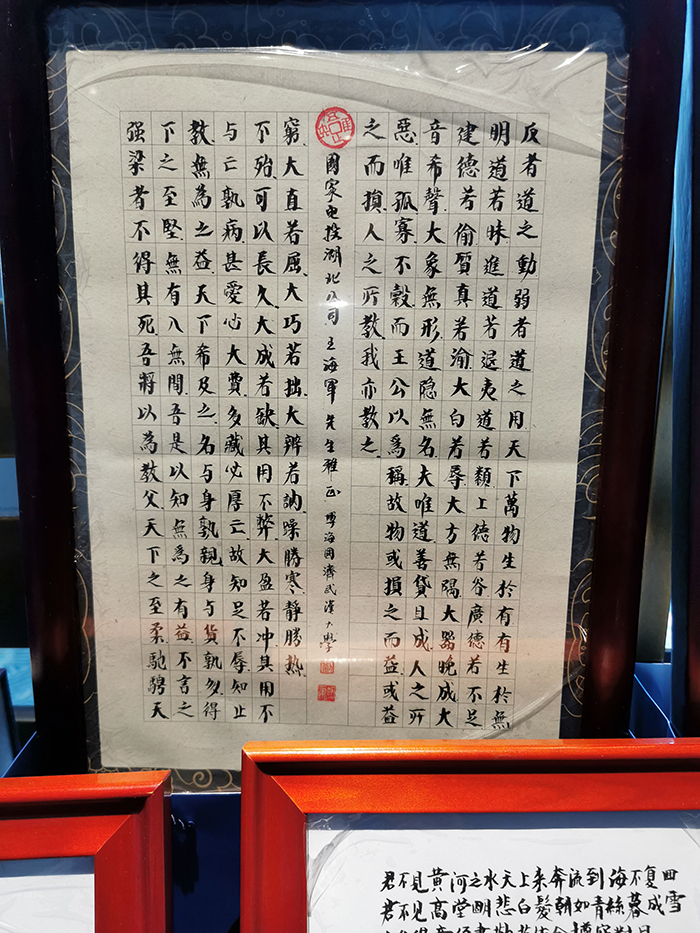 反者道之動弱者道之用天下萬物生於有有生於無
明道若昧進道若退夷道若纇上德若谷廣德若不足
建德若偷質真若渝大白若辱大方無隅大器晚成大
音希聲大象無形道隐無名夫唯道善貸且成人之所
惡唯孤寡不穀而王公以為稱故物或損之而益或益
之而損人之所教我亦教之
强梁者不得其死吾將以為教父天下之至柔馳騁天
下之至堅無有入無間吾是以知無為之有益不言之
教無為之益天下希及之名与身孰親身与貨孰多得
与亡孰病甚愛必大費多藏必厚亡故知足不辱知止
不殆可以長久大成若缺其用不弊大盈若冲其用不
窮大直若屈大巧若拙大辨若訥躁勝寒靜勝熱
國家电投湖北公司王海軍先生雅正 武漢大學
君不見黄河之水天上来奔流到海不復回
君不見高堂明悲白髮朝如青絲暮成雪